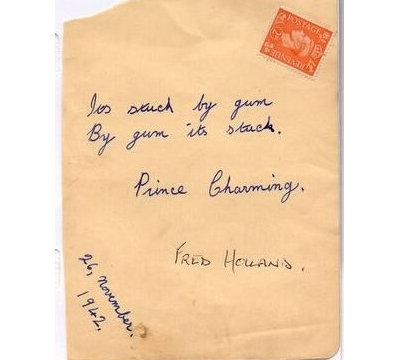 POSTAGE
REVENUE
Its stuck by gum
By gum its stuck.
Prince Charming.
FRED HOLLAND.
26, november.
1942.